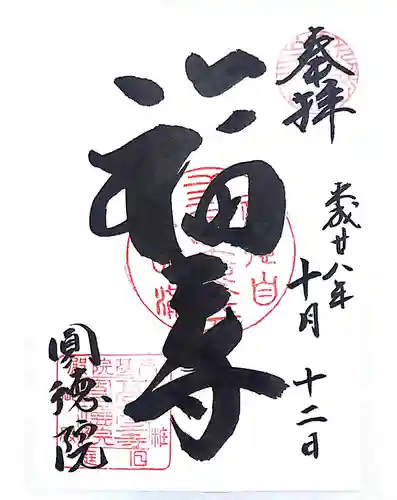 奉拝
平成廿八年
十月
十二日
福寿
圓徳院